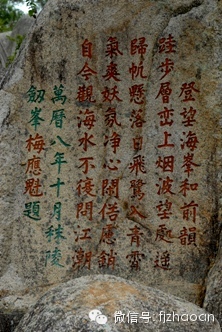 登望海峯和前韻
跬步層峦上烟波望處遥
歸帆懸落日飛鷺入青霄
氣爽妖氛净心閒俗慮銷
自今觀海水不復問江潮
萬曆八年十月秣陵
劔峯梅應魁題
微信号: fjzhaocin